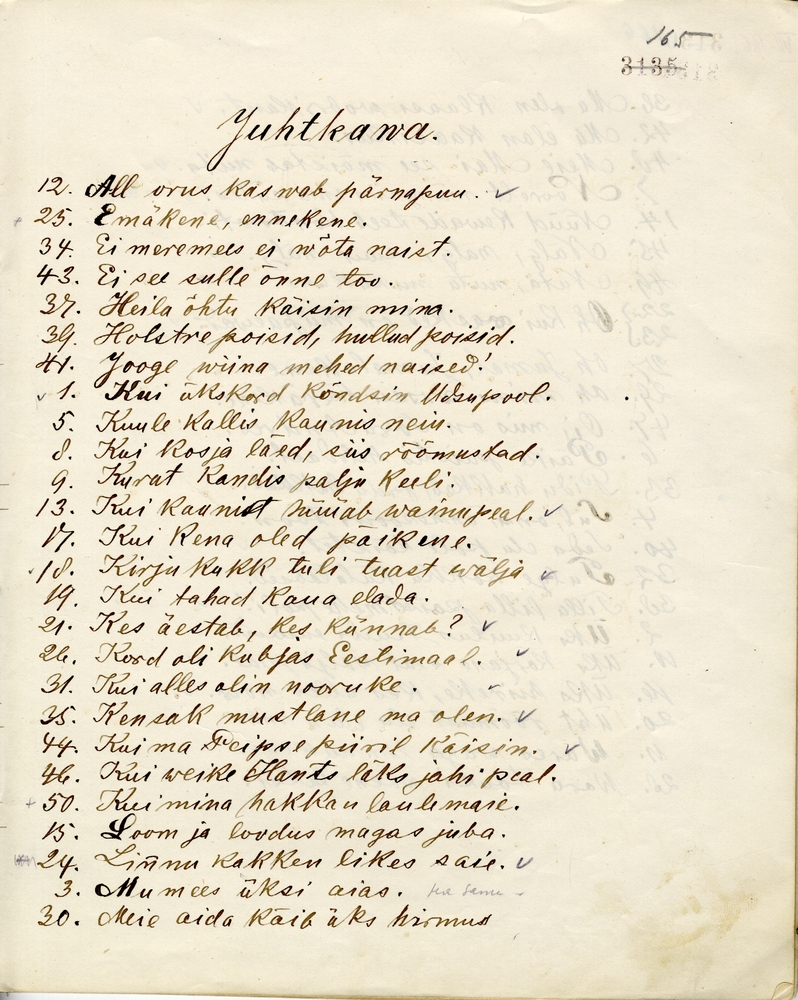 165
3135
Juhtkawa.
12. All orus kaswab pärnapuu.
25. Emäkene, ennekene.
34. Ei meremees ei wõta naist.
43. Ei see sulle õnne too.
37. Heila õhtu käisin mina.
39. Holstre poisid, hullud poisid.
41. Jooge wiina mehed naised!
1. Kui ükskord kõndsin Udsupool.
5. Kuule kallis kaunis nein.
8. Kui kosja läed, siis rõõmustad.
9. Kurat kandis palju keeli.
13. Kui kaunist hüüab wainupeal.
17. Kui kena oled päikene.
18. Kirju kukk tuli tuast wälja
19. Kui tahad kaua elada.
21. Kes äestab, kes künnab?
26. Kord oli kubjas Eestimaal.
31. Kui alles olin nooruke.
35. Kensak mustlane ma olen.
44. Kui ma Peipse piiril käisin.
46. Kui weike Hants läks jahi peal.
50. Kui mina hakkan laulemaie.
15. Loom ja loodus magas juba.
24. Linnu kakken likes saie.
3. Mu mees üksi aias.
30. Meie aida käib üks hirmus